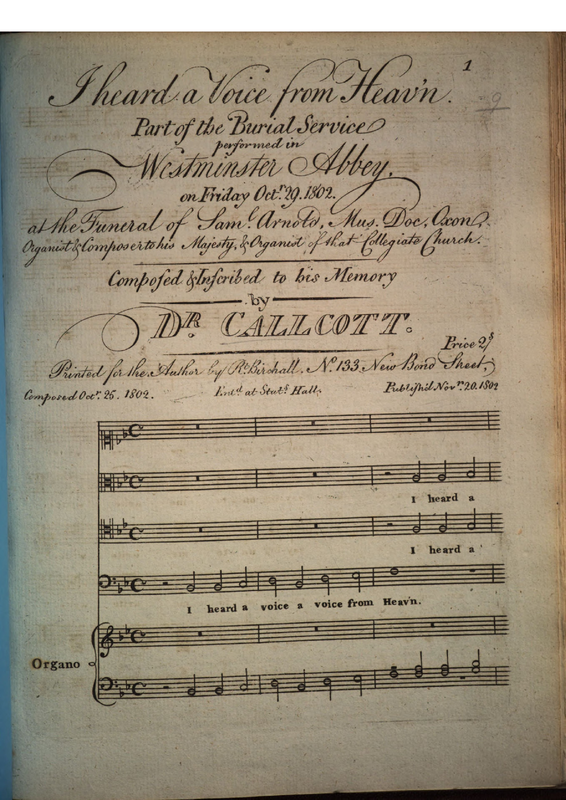 1
I heard a Voice from Heav'n.
9
Part of the Burial Service
performed in
Westminster Abbey,
on Friday Octr. 29. 1802.
at the Funeral of Saml. Arnold, Mus. Doc. Oxon,
Organist & Composer to his Majesty, & Organist of that Collegiate Church.
Composed & Inscribed to his Memory
by
DR. CALLCOTT.
Price 2s
Printed for the Author by Rt. Birchall, No. 133 New Bond Street,
Composed Octr. 25. 1802. Entd. at Stats. Hall. Publish'd Novr. 20. 1802
I heard a
I heard a
I heard a voice a voice from Heav'n.
Organo